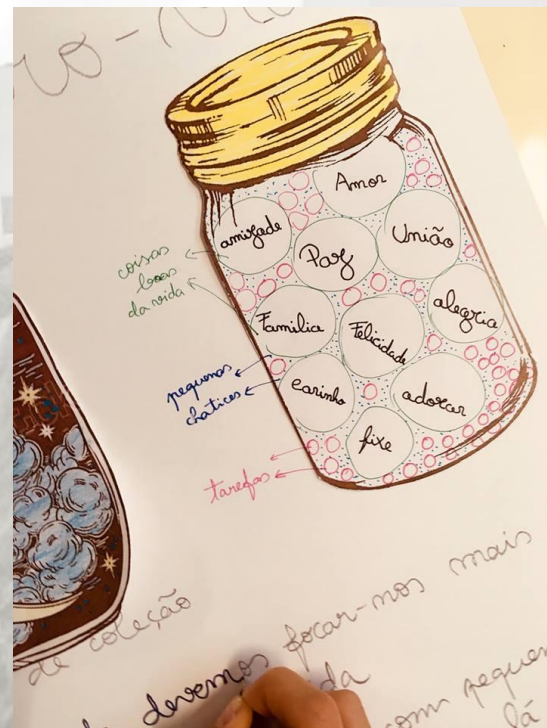 Amor
amizade
Paz
União
Família
Felicidade
alegria
carinho
adorar
fixe
coisas
boas
da vida
pequenas
chatices
tarefas
de coleção
devemos focar-nos mais
da
com pequen
lá